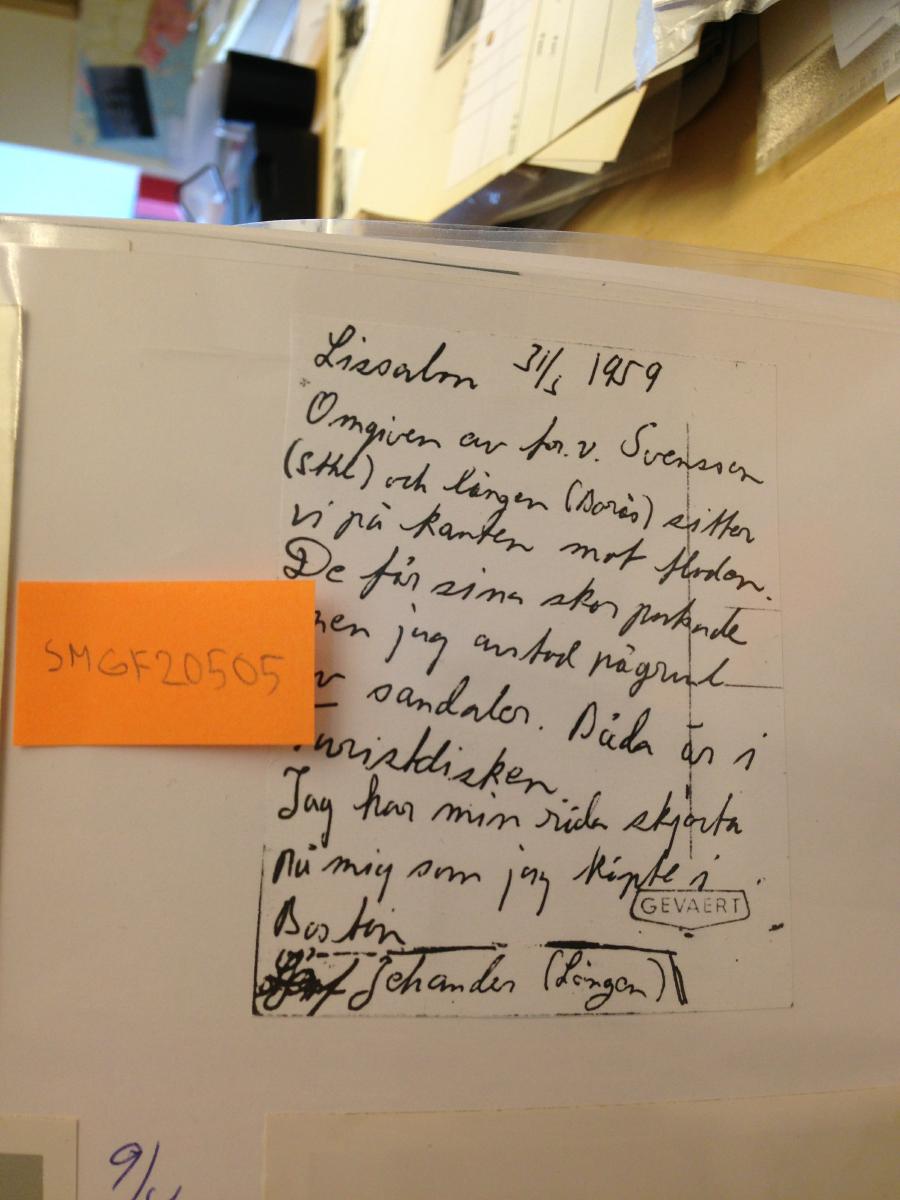 Lissabon 31/3 1959
Omgiven av fr.v. Svensson
(Sthl) och Lången (Borås) sitter
vi på kanten mot floden.
De får sina skor putsade
men jag avstod pågrund
av sandaler. Båda är i
Turistdisken
Jag har min röda skjorta
på mig som jag köpte i
Boston
GEVAERT
Jehander (Lången)
SMGF20505
9/